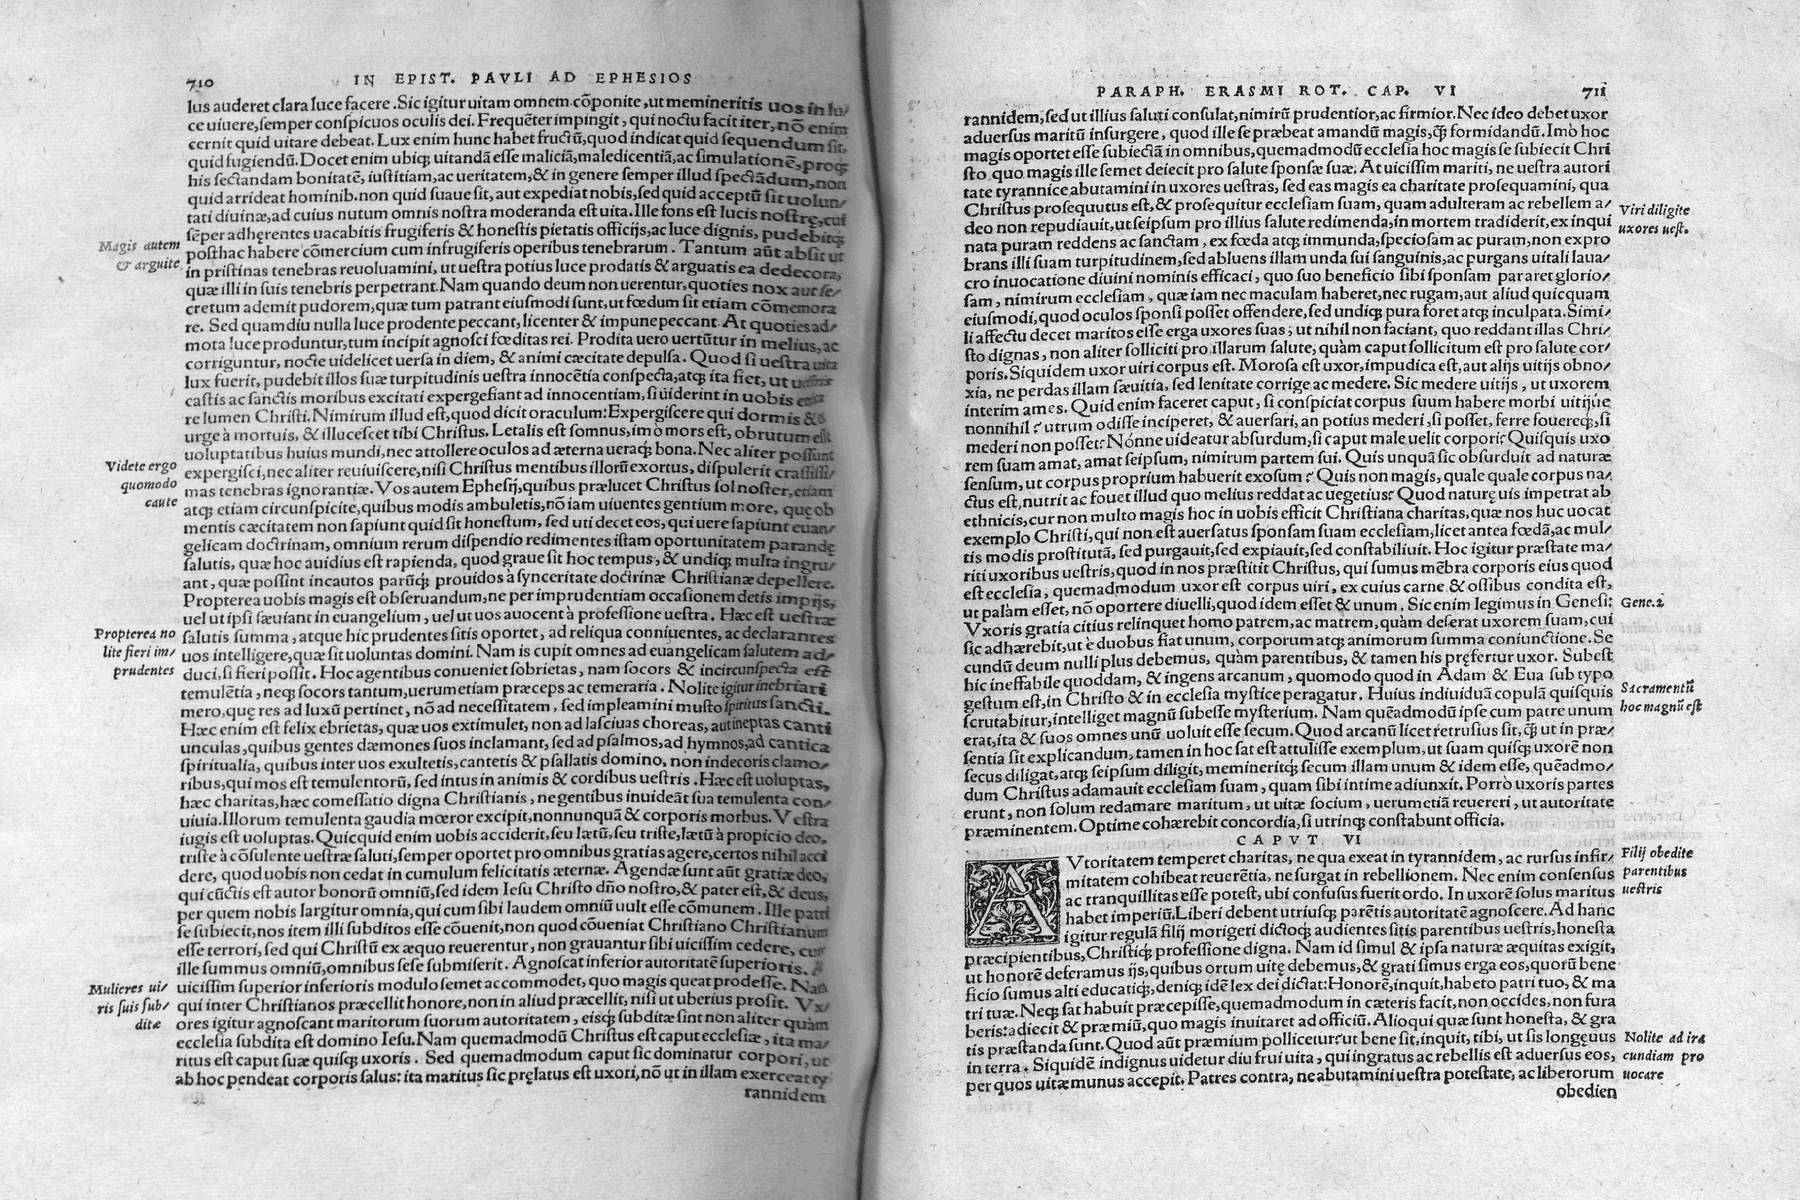 710 IN EPIST. PAVLI AD EPHESIOS
lus auderet clara luce facere. Sic igitur uitam omnem cõponite, ut memineritis uos in lu/
ce uiuere, semper conspicuos oculis dei. Frequẽter impingit, qui noctu facit iter, nõ enim
cernit quid uitare debeat. Lux enim hunc habet fructũ, quod indicat quid sequendum sit,
quid fugiendũ. Docet enim ubiqꝫ uitandã esse maliciã, maledicentiã, ac simulationẽ, proqꝫ
his sectandam bonitatẽ, iustitiam, ac ueritatem, & in genere semper illud spectãdum, non
quid arrideat hominib. non quid suaue sit, aut expediat nobis, sed quid acceptũ sit uolun/
tati diuinæ, ad cuius nutum omnis nostra moderanda est uita. Ille fons est lucis nostrę, cui
sẽper adhęrentes uacabitis frugiferis & honestis pietatis officijs, ac luce dignis, pudebitqꝫ
Magis autem
& arguite
posthac habere cõmercium cum infrugiferis operibus tenebrarum. Tantum aũt absit ut
in pristinas tenebras reuoluamini, ut uestra potius luce prodatis & arguatis ea dedecora,
quæ illi in suis tenebris perpetrant. Nam quando deum non uerentur, quoties nox aut se/
cretum ademit pudorem, quæ tum patrant eiusmodi sunt, ut fœdum sit etiam cõmemora
re. Sed quamdiu nulla luce prodente peccant, licenter & impune peccant. At quoties ad/
mota luce produntur, tum incipit agnosci fœditas rei. Prodita uero uertũtur in melius, ac
corriguntur, nocte uidelicet uersa in diem, & animi cæcitate depulsa. Quod si uestra uita
lux fuerit, pudebit illos suæ turpitudinis uestra innocẽtia conspecta, atqꝫ ita fiet, ut uestris
castis ac sanctis moribus excitati expergefiant ad innocentiam, si uiderint in uobis
re lumen Christi. Nimirum illud est, quod dicit oraculum: Expergiscere qui dormis &
urge à mortuis, & illucescet tibi Christus. Letalis est somnus, imò mors est, obrutum est
uoluptatibus huius mundi, nec attollere oculos ad æterna ueraqꝫ bona. Nec aliter possunt
Videte ergo
quomodo
caute
expergisci, nec aliter reuiuiscere, nisi Christus mentibus illorũ exortus, dispulerit crassissi/
mas tenebras ignorantiæ. Vos autem Ephesij, quibus prælucet Christus sol noster, etiam
atqꝫ etiam circunspicite, quibus modis ambuletis, nõ iam uiuentes gentium more, que ob
mentis cæcitatem non sapiunt quid sit honestum, sed uti decet eos, qui uere sapiunt euan/
gelicam doctrinam, omnium rerum dispendio redimentes istam oportunitatem parandę
salutis, quæ hoc auidius est rapienda, quod graue sit hoc tempus, & undiqꝫ multa ingru/
ant, quæ possint incautos parũqꝫ prouidos à synceritate doctrinæ Christianæ depellere.
Propterea uobis magis est obseruandum, ne per imprudentiam occasionem detis impijs,
uel ut ipsi sæuiant in euangelium, uel ut uos auocent à professione uestra. Hæc est uestræ
Propterea no
lite fieri im/
prudentes
salutis summa, atque hic prudentes sitis oportet, ad reliqua conniuentes, ac declarantes
uos intelligere, quæ sit uoluntas domini. Nam is cupit omnes ad euangelicam salutem ad/
duci, si fieri possit. Hoc agentibus conueniet sobrietas, nam socors & incircunspecta est
temulẽtia, neqꝫ socors tantum, uerumetiam præceps ac temeraria. Nolite igitur inebriari
mero, quę res ad luxũ pertinet, nõ ad necessitatem, sed impleamini musto spiritus sancti.
Hæc enim est felix ebrietas, quæ uos extimulet, non ad lasciuas choreas, aut ineptas canti
unculas, quibus gentes dæmones suos inclamant, sed ad psalmos, ad hymnos, ad cantica
spiritualia, quibus inter uos exultetis, cantetis & psallatis domino, non indecoris clamo/
ribus, qui mos est temulentorũ, sed intus in animis & cordibus uestris. Hæc est uoluptas,
hæc charitas, hæc comessatio digna Christianis, ne gentibus inuideãt sua temulenta con/
uiuia. Illorum temulenta gaudia mœror excipit, nonnunquã & corporis morbus. Vestra
iugis est uoluptas. Quicquid enim uobis acciderit, seu lætũ, seu triste, lætũ à propicio deo,
triste à cõsulente uestræ saluti, semper oportet pro omnibus gratias agere, certos nihil acci
dere, quod uobis non cedat in cumulum felicitatis æternæ. Agendæ sunt aũt gratiæ deo,
qui cũctis est autor bonorũ omniũ, sed idem Iesu Christo dño nostro, & pater est, & deus,
per quem nobis largitur omnia, qui cum sibi laudem omniũ uult esse cõmunem. Ille patri
se subiecit, nos item illi subditos esse cõuenit, non quod cõueniat Christiano Christianum
esse terrori, sed qui Christũ ex æquo reuerentur, non grauantur sibi uicissim cedere, cum
ille summus omniũ, omnibus sese submiserit. Agnoscat inferior autoritatẽ superioris.
Mulieres ui/
ris suis sub/
ditæ
uicissim superior inferioris modulo semet accommodet, quo magis queat prodesse. Nam
qui inter Christianos præcellit honore, non in aliud præcellit, nisi ut uberius prosit. Vx/
ores igitur agnoscant maritorum suorum autoritatem, eisqꝫ subditæ sint non aliter quàm
ecclesia subdita est domino Iesu. Nam quemadmodũ Christus est caput ecclesiæ, ita ma/
ritus est caput suæ quisqꝫ uxoris. Sed quemadmodum caput sic dominatur corpori, ut
ab hoc pendeat corporis salus: ita maritus sic pręlatus est uxori, nõ ut in illam exerceat ty
rannidem
PARAPH. ERASMI ROT. CAP. VI 711
rannidem, sed ut illius saluti consulat, nimirũ prudentior, ac firmior. Nec ideo debet uxor
aduersus maritũ insurgere, quod ille se præbeat amandũ magis, ꝗ̃ formidandũ. Imò hoc
magis oportet esse subiectã in omnibus, quemadmodũ ecclesia hoc magis se subiecit Chri
sto, quo magis ille semet deiecit pro salute sponsæ suæ. At uicissim mariti, ne uestra autori
tate tyrannice abutamini in uxores uestras, sed eas magis ea charitate prosequamini, qua
Christus prosequutus est, & prosequitur ecclesiam suam, quam adulteram ac rebellem a/
Viri diligite
uxores uest.
deo non repudiauit, ut seipsum pro illius salute redimenda, in mortem tradiderit, ex inqui
nata puram reddens ac sanctam, ex fœda atqꝫ immunda, speciosam ac puram, non expro
brans illi suam turpitudinem, sed abluens illam unda sui sanguinis, ac purgans uitali laua/
cro inuocatione diuini nominis efficaci, quo suo beneficio sibi sponsam pararet glorio/
sam, nimirum ecclesiam, quæ iam nec maculam haberet, nec rugam, aut aliud quicquam
eiusmodi, quod oculos sponsi posset offendere, sed undiqꝫ pura foret atqꝫ inculpata. Simi/
li affectu decet maritos esse erga uxores suas, ut nihil non faciant, quo reddant illas Chri/
sto dignas, non aliter solliciti pro illarum salute, quàm caput sollicitum est pro salute cor/
poris. Siquidem uxor uiri corpus est. Morosa est uxor, impudica est, aut alijs uitijs obno/
xia, ne perdas illam sæuitia, sed lenitate corrige ac medere. Sic medere uitijs, ut uxorem
interim ames. Quid enim faceret caput, si conspiciat corpus suum habere morbi uitijue
nonnihil? utrum odisse inciperet, & auersari, an potius mederi, si posset, ferre fouereqꝫ, si
mederi non posset? Nónne uideatur absurdum, si caput male uelit corpori? Quisquis uxo
rem suam amat, amat seipsum, nimirum partem sui. Quis unquã sic obsurduit ad naturæ
sensum, ut corpus proprium habuerit exosum? Quis non magis, quale quale corpus na/
ctus est, nutrit ac fouet illud quo melius reddat ac uegetius? Quod naturę uis impetrat ab
ethnicis, cur non multo magis hoc in uobis efficit Christiana charitas, quæ nos huc uocat
exemplo Christi, qui non est auersatus sponsam suam ecclesiam, licet antea fœdã, ac mul/
tis modis prostitutã, sed purgauit, sed expiauit, sed constabiliuit. Hoc igitur præstate ma/
riti uxoribus uestris, quod in nos præstitit Christus, qui sumus mẽbra corporis eius quod
est ecclesia, quemadmodum uxor est corpus uiri, ex cuius carne & ossibus condita est,
ut palàm esset, nõ oportere diuelli, quod idem esset & unum. Sic enim legimus in Genesi:
Gene. 2
Vxoris gratia citius relinquet homo patrem, ac matrem, quàm deserat uxorem suam, cui
sic adhærebit, ut è duobus fiat unum, corporum atqꝫ animorum summa coniunctione. Se
cundũ deum nulli plus debemus, quàm parentibus, & tamen his pręfertur uxor. Subest
hic ineffabile quoddam, & ingens arcanum, quomodo quod in Adam & Eua sub typo
gestum est, in Christo & in ecclesia mystice peragatur. Huius indiuiduã copulã quisquis
Sacramentũ
hoc magnũ est
scrutabitur, intelliget magnũ subesse mysterium. Nam quẽadmodũ ipse cum patre unum
erat, ita & suos omnes unũ uoluit esse secum. Quod arcanũ licet retrusius sit, ꝗ̃ ut in præ/
sentia sit explicandum, tamen in hoc sat est attulisse exemplum, ut suam quisqꝫ uxorẽ non
secus diligat, atqꝫ seipsum diligit, memineritqꝫ secum illam unum & idem esse, quẽadmo/
dum Christus adamauit ecclesiam suam, quam sibi intime adiunxit. Porrò uxoris partes
erunt, non solum redamare maritum, ut uitæ socium, uerumetiã reuereri, ut autoritate
præminentem. Optime cohærebit concordia, si utrinqꝫ constabunt officia.
CAPVT VI
AVtoritatem temperet charitas, ne qua exeat in tyrannidem, ac rursus infir/
mitatem cohibeat reuerẽtia, ne surgat in rebellionem. Nec enim consensus
ac tranquillitas esse potest, ubi confusus fuerit ordo. In uxorẽ solus maritus
habet imperiũ. Liberi debent utriusqꝫ parẽtis autoritatẽ agnoscere. Ad hanc
igitur regulã filij morigeri dictoqꝫ audientes sitis parentibus uestris, honesta
Filij obedite
parentibus
uestris
præcipientibus, Christiqꝫ professione digna. Nam id simul & ipsa naturæ æquitas exigit,
ut honorẽ deferamus ijs, quibus ortum uitę debemus, & grati simus erga eos, quorũ bene
ficio sumus alti educatiqꝫ, deniqꝫ idẽ lex dei dictat: Honorẽ, inquit, habeto patri tuo, & ma
tri tuæ. Neqꝫ sat habuit præcepisse, quemadmodum in cæteris facit, non occides, non fura
beris: adiecit & præmiũ, quo magis inuitaret ad officiũ. Alioqui quæ sunt honesta, & gra
tis præstanda sunt. Quod aũt præmium pollicetur? ut bene sit, inquit, tibi, ut sis longęuus
in terra. Siquidẽ indignus uidetur diu frui uita, qui ingratus ac rebellis est aduersus eos,
per quos uitæ munus accepit. Patres contra, ne abutamini uestra potestate, ac liberorum
Nolite ad ira
cundiam pro
uocare
obedien